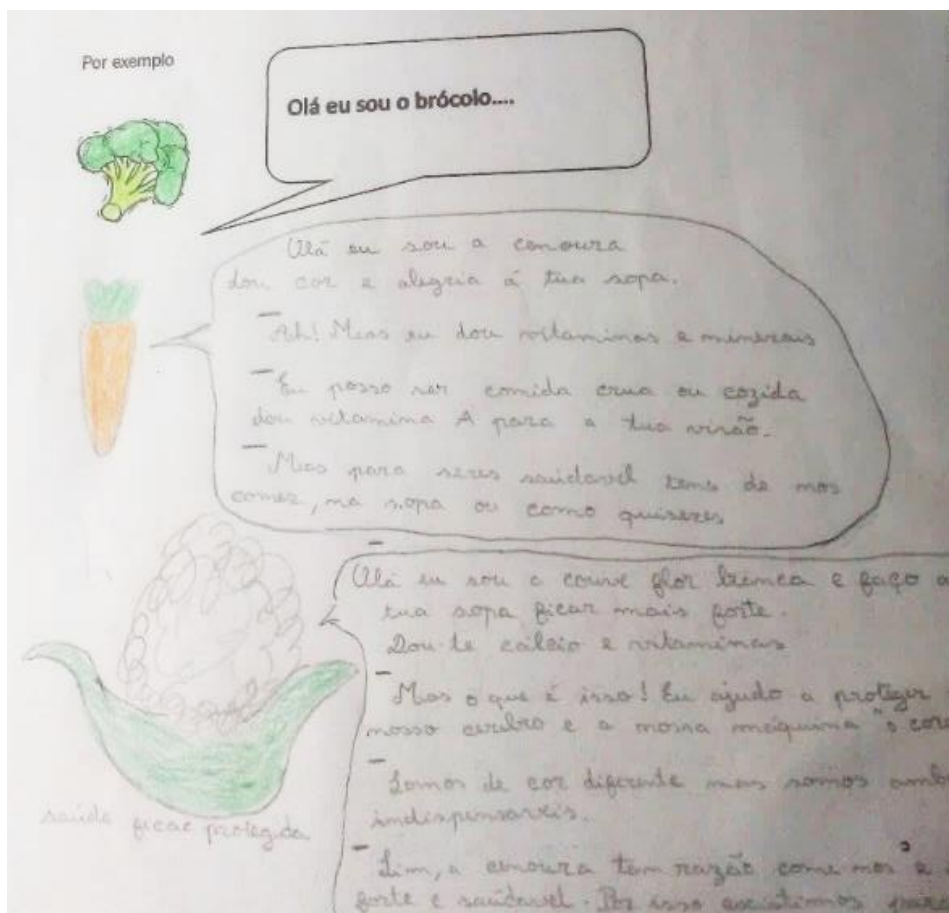 Por exemplo
Olá eu sou o brócolo....
Olá eu sou a cenoura
dou cor e alegria á tua sopa.
— Ah! Mas eu dou vitaminas e minerais
— Eu posso ser comida crua ou cozida
dou vitamina A para a tua visão.
— Mas para seres saúdavel tens de nos
comer, na sopa ou como quiseres
Olá eu sou a couve flor branca e faço a
tua sopa ficar mais forte.
Dou-te cálcio e vitaminas
— Mas o que é isso! Eu ajudo a proteger
nosso cerebro e a nossa maquina "o
— Somos de cor diferente mas somos
indispensaveis.
— Sim, a cenoura tem razão come-nos e
forte e saúdavel. Por isso existimos para
saúde ficar protegida